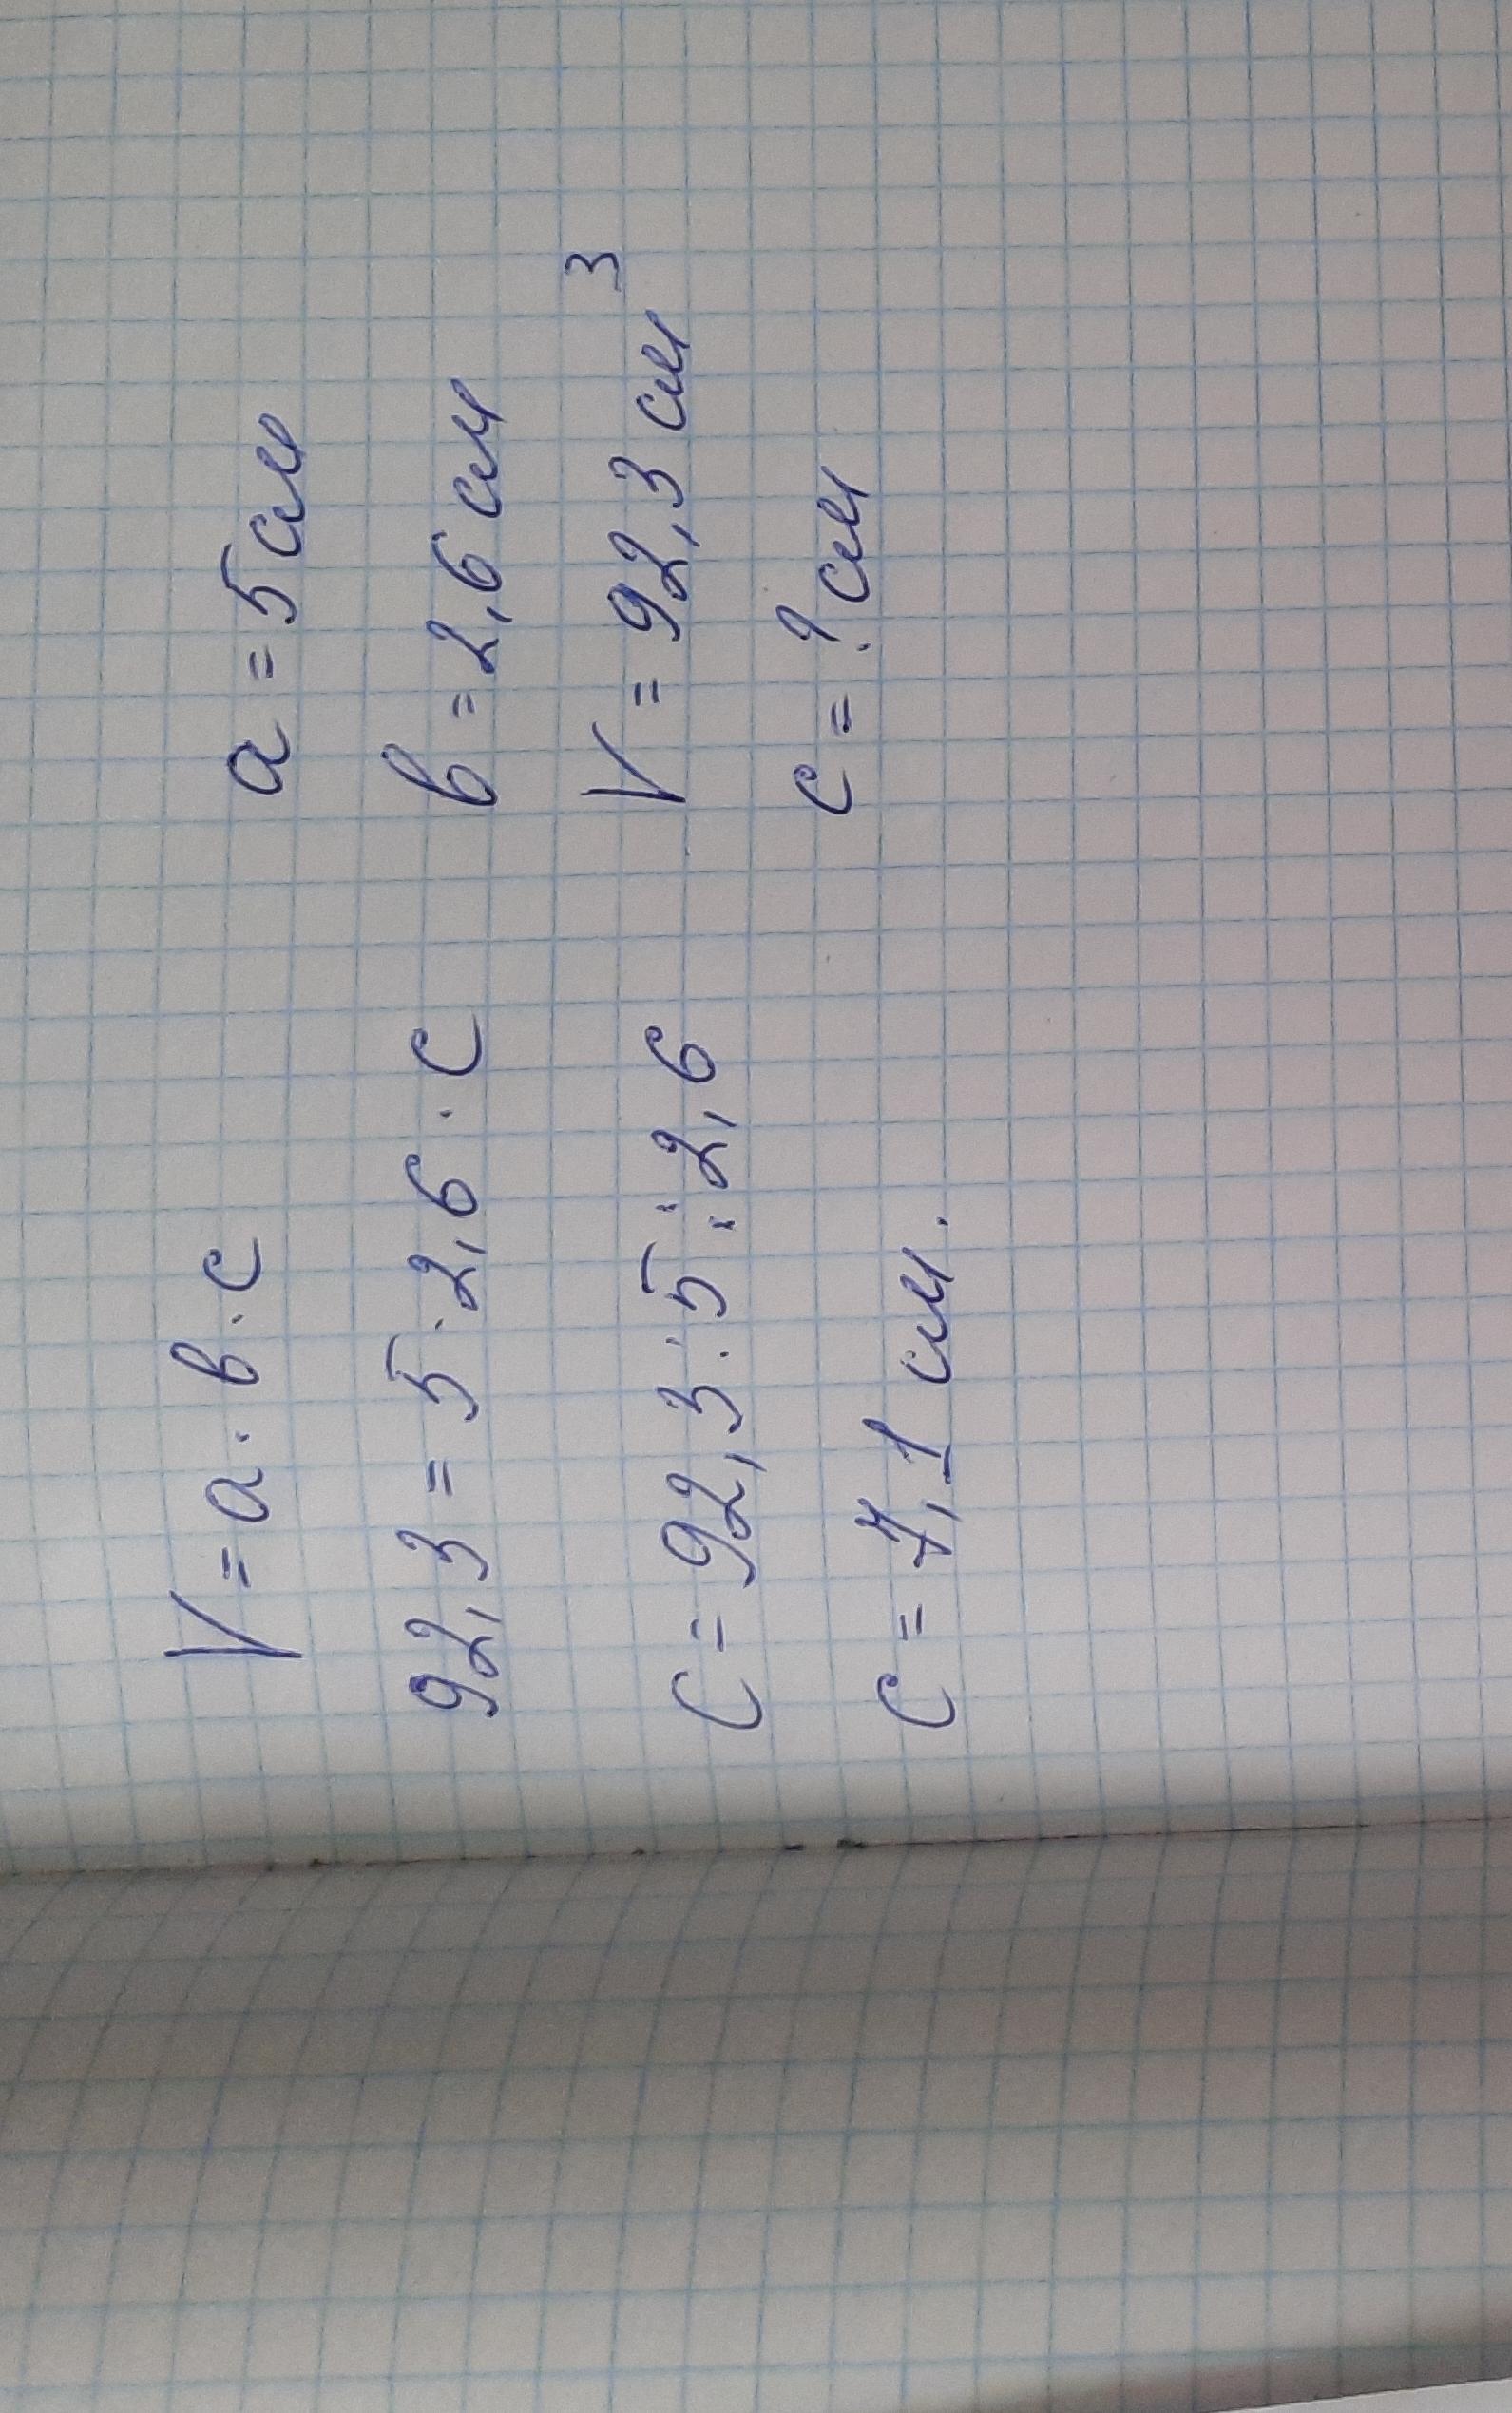 V = a · в · c
92,3 = 5 · 2,6 · c
c = 92,3 : 5 : 2,6
c = 7,1 см.
a = 5 см
в = 2,6 см
V = 92,3 см³
c = ? см